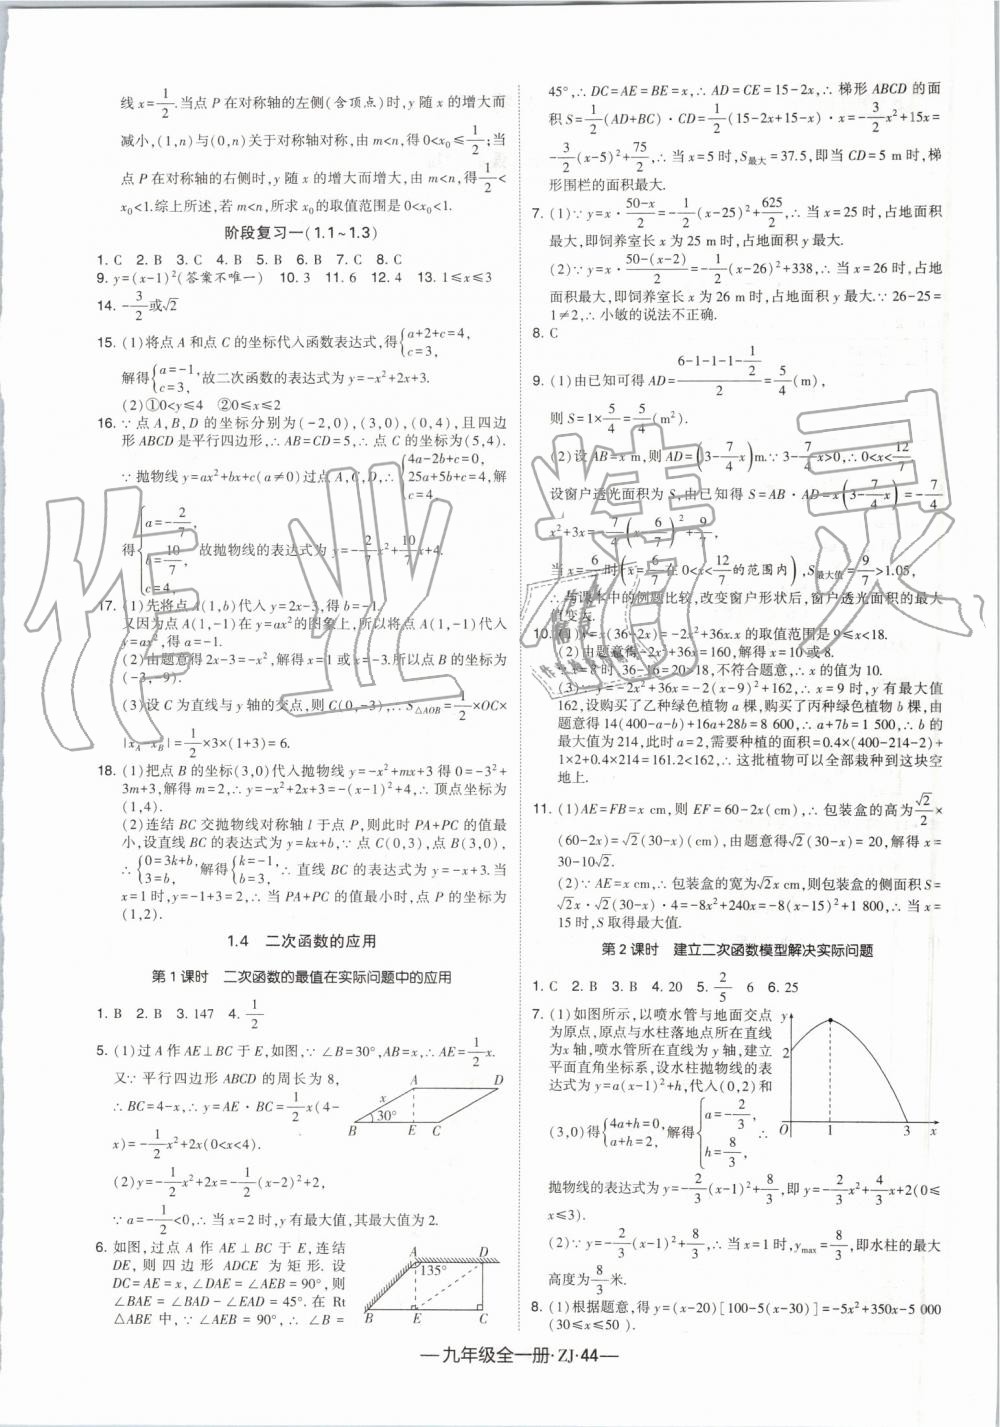 线x=1/2.当点P在对称轴的左侧(含顶点)时,y随x的增大而
减小,(1,n)与(0,n)关于对称轴对称,由m<n,得0<x₀≤1/2;当
点P在对称轴的右侧时,y随x的增大而增大,由m<n,得1/2<
x₀<1.综上所述,若m<n,所求x₀的取值范围是0<x₀<1.
阶段复习一(1.1~1.3)
1. C 2. B 3. C 4. B 5. B 6. B 7. C 8. C
9. y=(x-1)²(答案不唯一) 10. 3 11. 6 12. 4 13. 1≤x≤3
14. -3/2或√2
15. (1)将点A和点C的坐标代入函数表达式,得{a+2+c=4, c=3,
解得{a=-1, c=3,故二次函数的表达式为y=-x²+2x+3.
(2)①0<y≤4 ②0≤x≤2
16. ∵点A,B,D的坐标分别为(-2,0),(3,0),(0,4),且四边
形ABCD是平行四边形,∴AB=CD=5,∴点C的坐标为(5,4).
∵抛物线y=ax²+bx+c(a≠0)过点A,C,D,∴{4a-2b+c=0, 25a+5b+c=4, c=4, 解
得{a=-2/7, b=10/7, c=4, 故抛物线的表达式为y=-2/7x²+10/7x+4.
17. (1)先将点A(1,b)代入y=2x-3,得b=-1.
又因为点A(1,-1)在y=ax²的图象上,所以将点A(1,-1)代入
y=ax²,得a=-1.
(2)由题意得2x-3=-x²,解得x=1或x=-3.所以点B的坐标为
(-3,-9).
(3)设C为直线与y轴的交点,则C(0,-3),∴S△AOB=1/2×OC×
|xA-xB|=1/2×3×(1+3)=6.
18. (1)把点B的坐标(3,0)代入抛物线y=-x²+mx+3得0=-3²+
3m+3,解得m=2,∴y=-x²+2x+3=-(x-1)²+4,∴顶点坐标为
(1,4).
(2)连结BC交抛物线对称轴l于点P,则此时PA+PC的值最
小,设直线BC的表达式为y=kx+b,∵点C(0,3),点B(3,0),
∴{0=3k+b, 3=b, 解得{k=-1, b=3, ∴直线BC的表达式为y=-x+3.当
x=1时,y=-1+3=2,∴当PA+PC的值最小时,点P的坐标为
(1,2).
1.4 二次函数的应用
第1课时 二次函数的最值在实际问题中的应用
1. B 2. B 3. 147 4. 1/2
5. (1)过A作AE⊥BC于E,如图,∵∠B=30°,AB=x,∴AE=1/2x.
又∵平行四边形ABCD的周长为8,
∴BC=4-x,∴y=AE·BC=1/2x(4-
x)=-1/2x²+2x(0<x<4).
A D
x
30°
B E C
(2)y=-1/2x²+2x=-1/2(x-2)²+2,
∵a=-1/2<0,∴当x=2时,y有最大值,其最大值为2.
6. 如图,过点A作AE⊥BC于E,连结
DE,则四边形ADCE为矩形.设
DC=AE=x,∠DAE=∠AEB=90°,则
∠BAE=∠BAD-∠EAD=45°.在Rt
△ABE中,∵∠AEB=90°,∴∠B=
A D
135°
B E C
45°,∴DC=AE=BE=x,∴AD=CE=15-2x,∴梯形ABCD的面
积S=1/2(AD+BC)·CD=1/2(15-2x+15-x)·x=-3/2x²+15x=
-3/2(x-5)²+75/2,∴当x=5时,S最大=37.5,即当CD=5 m时,梯
形围栏的面积最大.
7. (1)∵y=x·(50-x)/2=-1/2(x-25)²+625/2,∴当x=25时,占地面积
最大,即饲养室长x为25 m时,占地面积y最大.
(2)∵y=x·(50-(x-2))/2=-1/2(x-26)²+338,∴当x=26时,占地面
积最大,即饲养室长x为26 m时,占地面积y最大.∵26-25=
1≠2,∴小敏的说法不正确.
8. C
9. (1)由已知可得AD=(6-1-1-1-1/2)/2=5/4(m),
则S=1×5/4=5/4(m²).
(2)设AB=x m,则AD=(3-7/4x)m.∵3-7/4x>0,∴0<x<12/7.
设窗户透光面积为S,由已知得S=AB·AD=x(3-7/4x)=-7/4
x²+3x=-7/4(x-6/7)²+9/7,
当x=6/7时(x=6/7在0<x<12/7的范围内),S最大值=9/7>1.05,
∴与课本中的例题比较,改变窗户形状后,窗户透光面积的最大
值变大.
10. (1)y=x(36-2x)=-2x²+36x.x的取值范围是9≤x<18.
(2)由题意得-2x²+36x=160,解得x=10或8.
∵x=8时,36-16=20>18,不符合题意,∴x的值为10.
(3)∵y=-2x²+36x=-2(x-9)²+162,∴x=9时,y有最大值
162,设购买了乙种绿色植物a棵,购买了丙种绿色植物b棵,由
题意得14(400-a-b)+16a+28b=8 600,∴a+7b=1 500,∴b的
最大值为214,此时a=2,需要种植的面积=0.4×(400-214-2)+
1×2+0.4×214=161.2<162,∴这批植物可以全部栽种到这块空
地上.
11. (1)AE=FB=x cm,则EF=60-2x(cm),∴包装盒的高为√2/2×
(60-2x)=√2(30-x)(cm),由题意得√2(30-x)=20,解得x=
30-10√2.
(2)∵AE=x cm,∴包装盒的宽为√2x cm,则包装盒的侧面积S=
√2x·√2(30-x)·4=-8x²+240x=-8(x-15)²+1 800,当x=
15时,S取得最大值.
第2课时 建立二次函数模型解决实际问题
1. C 2. B 3. C 4. 20 5. 2/5 6 6. 25
7. (1)如图所示,以喷水管与地面交点
为原点,原点与水柱落地点所在直线
为x轴,喷水管所在直线为y轴,建立
平面直角坐标系,设水柱抛物线的表
达式为y=a(x-1)²+h,代入(0,2)和
(3,0)得{4a+h=0, a+h=2, 解得{a=-2/3, h=8/3, ∴
y
2
O 1 3 x
抛物线的表达式为y=-2/3(x-1)²+8/3,即y=-2/3x²+4/3x+2(0≤
x≤3).
(2)∵y=-2/3(x-1)²+8/3,∴当x=1时,ymax=8/3,即水柱的最大
高度为8/3米.
8. (1)根据题意,得y=(x-20)[100-5(x-30)]=-5x²+350x-5 000
(30≤x≤50).
—九年级全一册·ZJ·44—
作业精灵